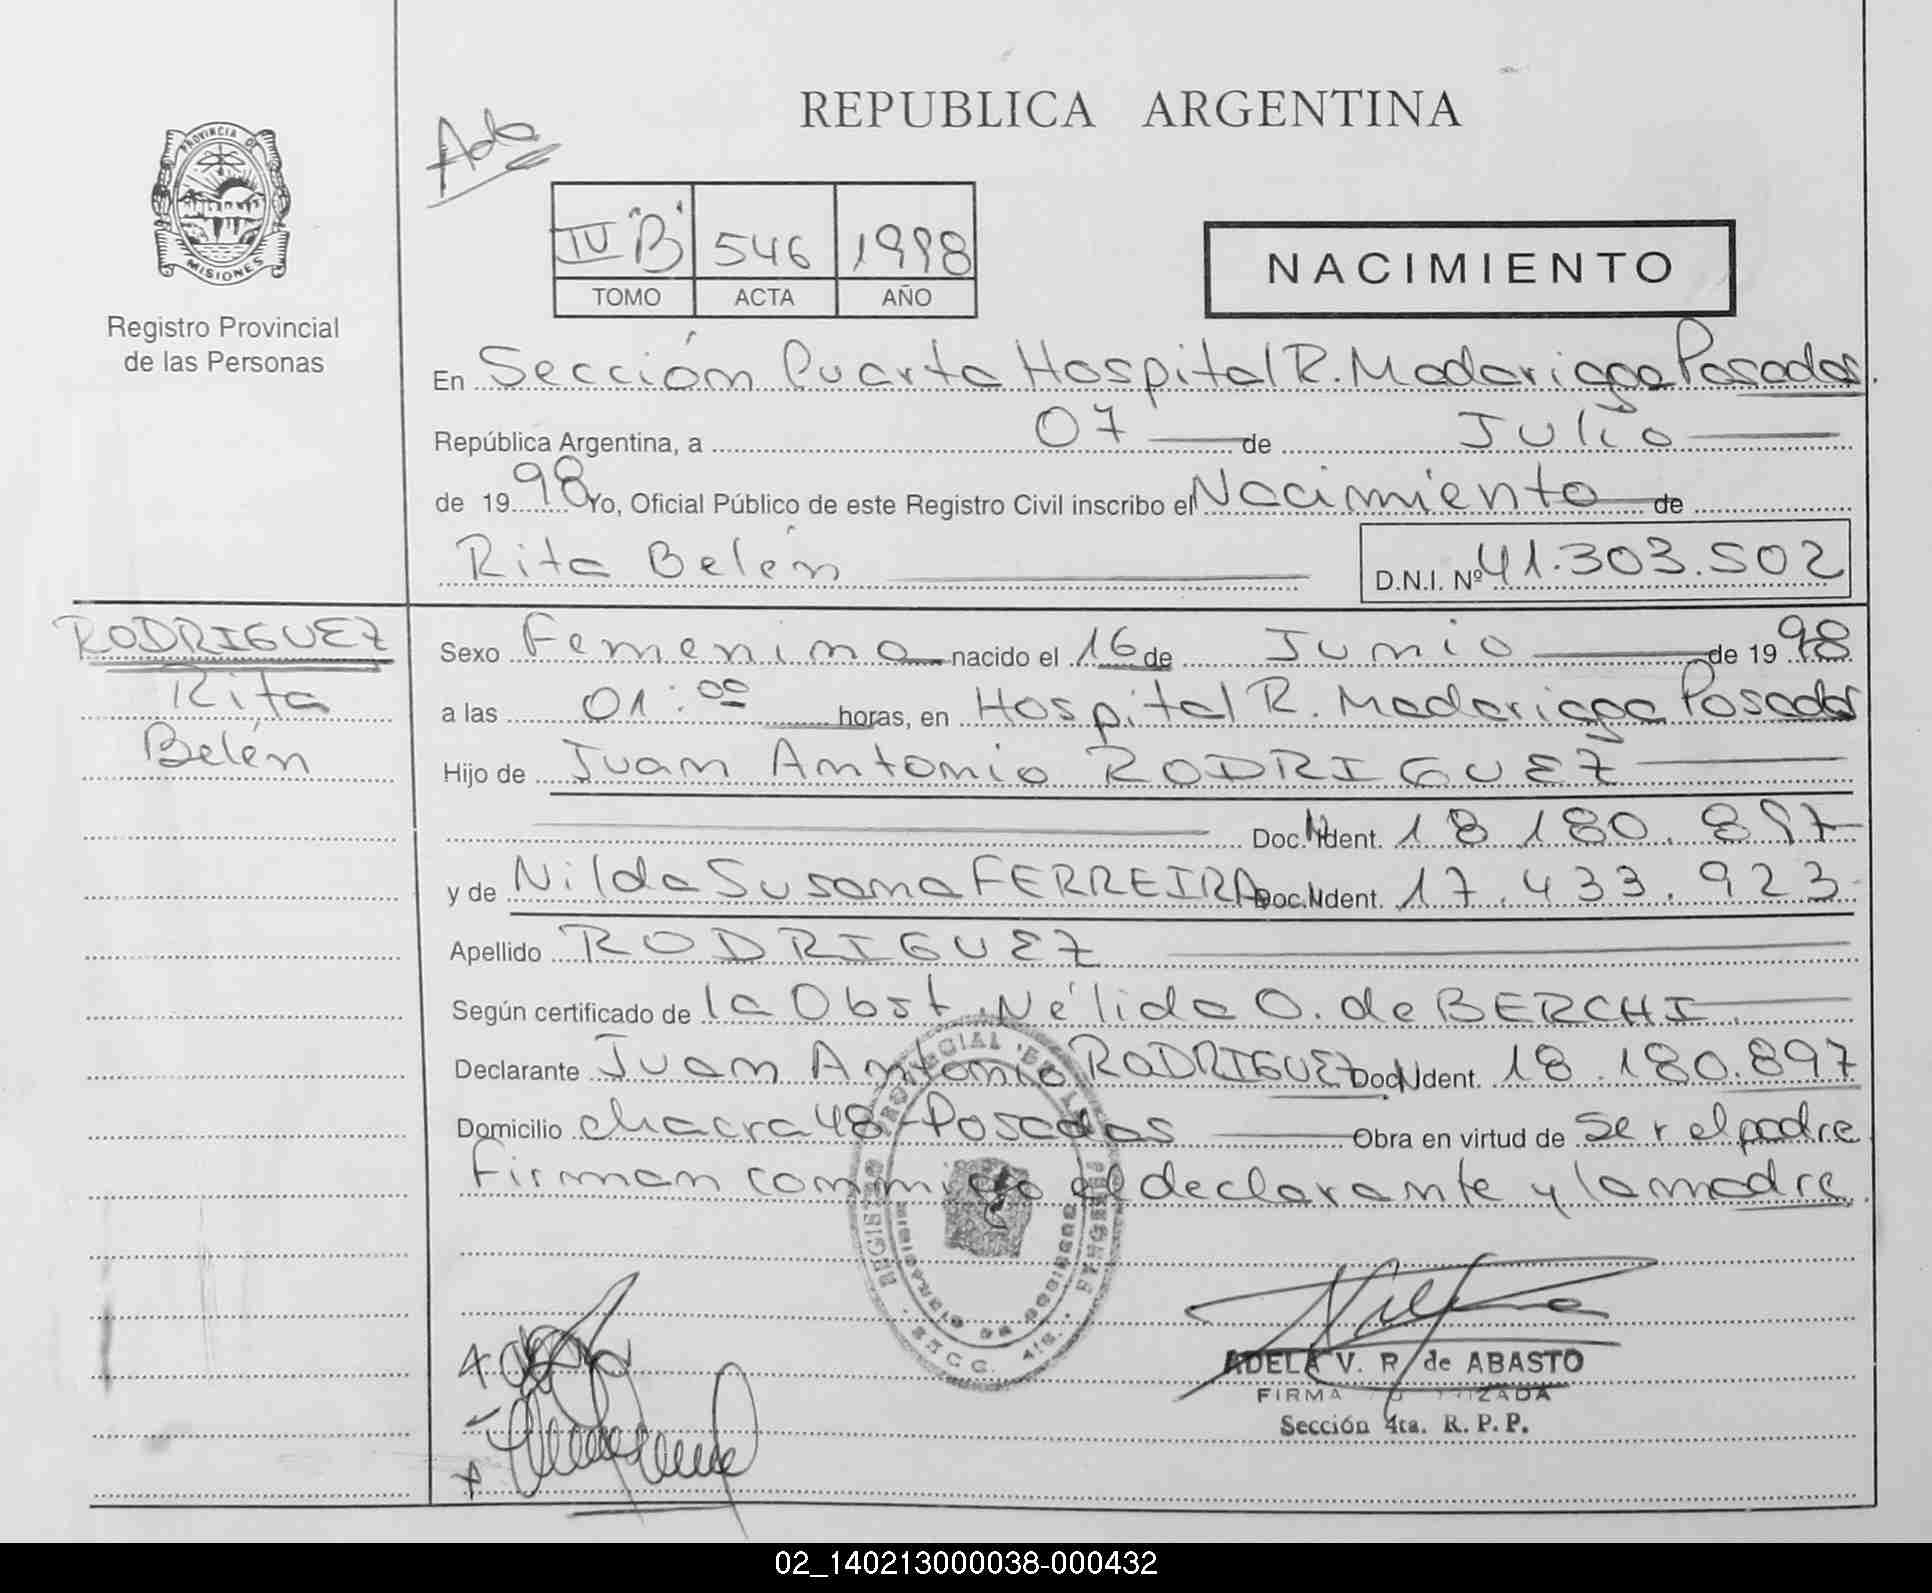 REPUBLICA ARGENTINA
Ado
PROVINCIA DE
MISIONES
Registro Provincial
de las Personas
IV "B" 546 1998
TOMO ACTA AÑO
NACIMIENTO
En Sección Cuarta Hospital R. Madariaga Posadas.
República Argentina, a 07 de Julio
de 1998 Yo, Oficial Público de este Registro Civil inscribo el Nacimiento de
Rita Belén D.N.I. Nº 41.303.502
RODRIGUEZ
Rita
Belén
Sexo Femenino nacido el 16 de Junio de 1998
a las 01:00 horas, en Hospital R. Madariaga Posadas
Hijo de Juan Antonio RODRIGUEZ
Doc. N Ident. 18.180.897
y de Nilda Susana FERREIRA Doc. N Ident. 17.433.923
Apellido RODRIGUEZ
Según certificado de la Obst. Nélida O. de BERCHI.
Declarante Juan Antonio RODRIGUEZ Doc N Ident. 18.180.897
Domicilio chacra 48 - Posadas Obra en virtud de ser el padre
Firman conmigo el declarante y la madre.
ADELA V. R. de ABASTO
FIRMA AUTORIZADA
Sección 4ta. R. P. P.
02_140213000038-000432